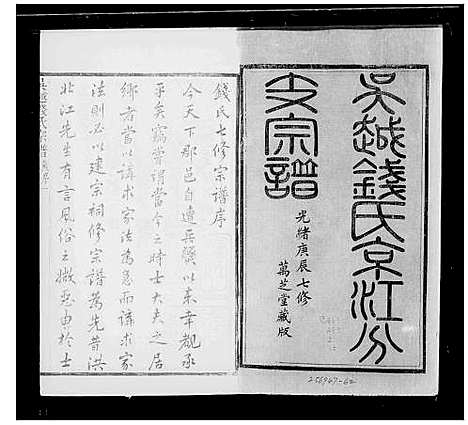 吳越錢氏京江分
支宗譜
光緒庚辰七修
萬芝堂藏版
256947-62
錢氏七修宗譜序
今天下郡邑自遭兵燹以來幸覩承
平矣竊嘗謂當今之時士大夫之居
鄉者當以講求家法為急而講求家
法則必以建宗祠修宗譜為先昔洪
北江先生有言風俗之敝起由於士